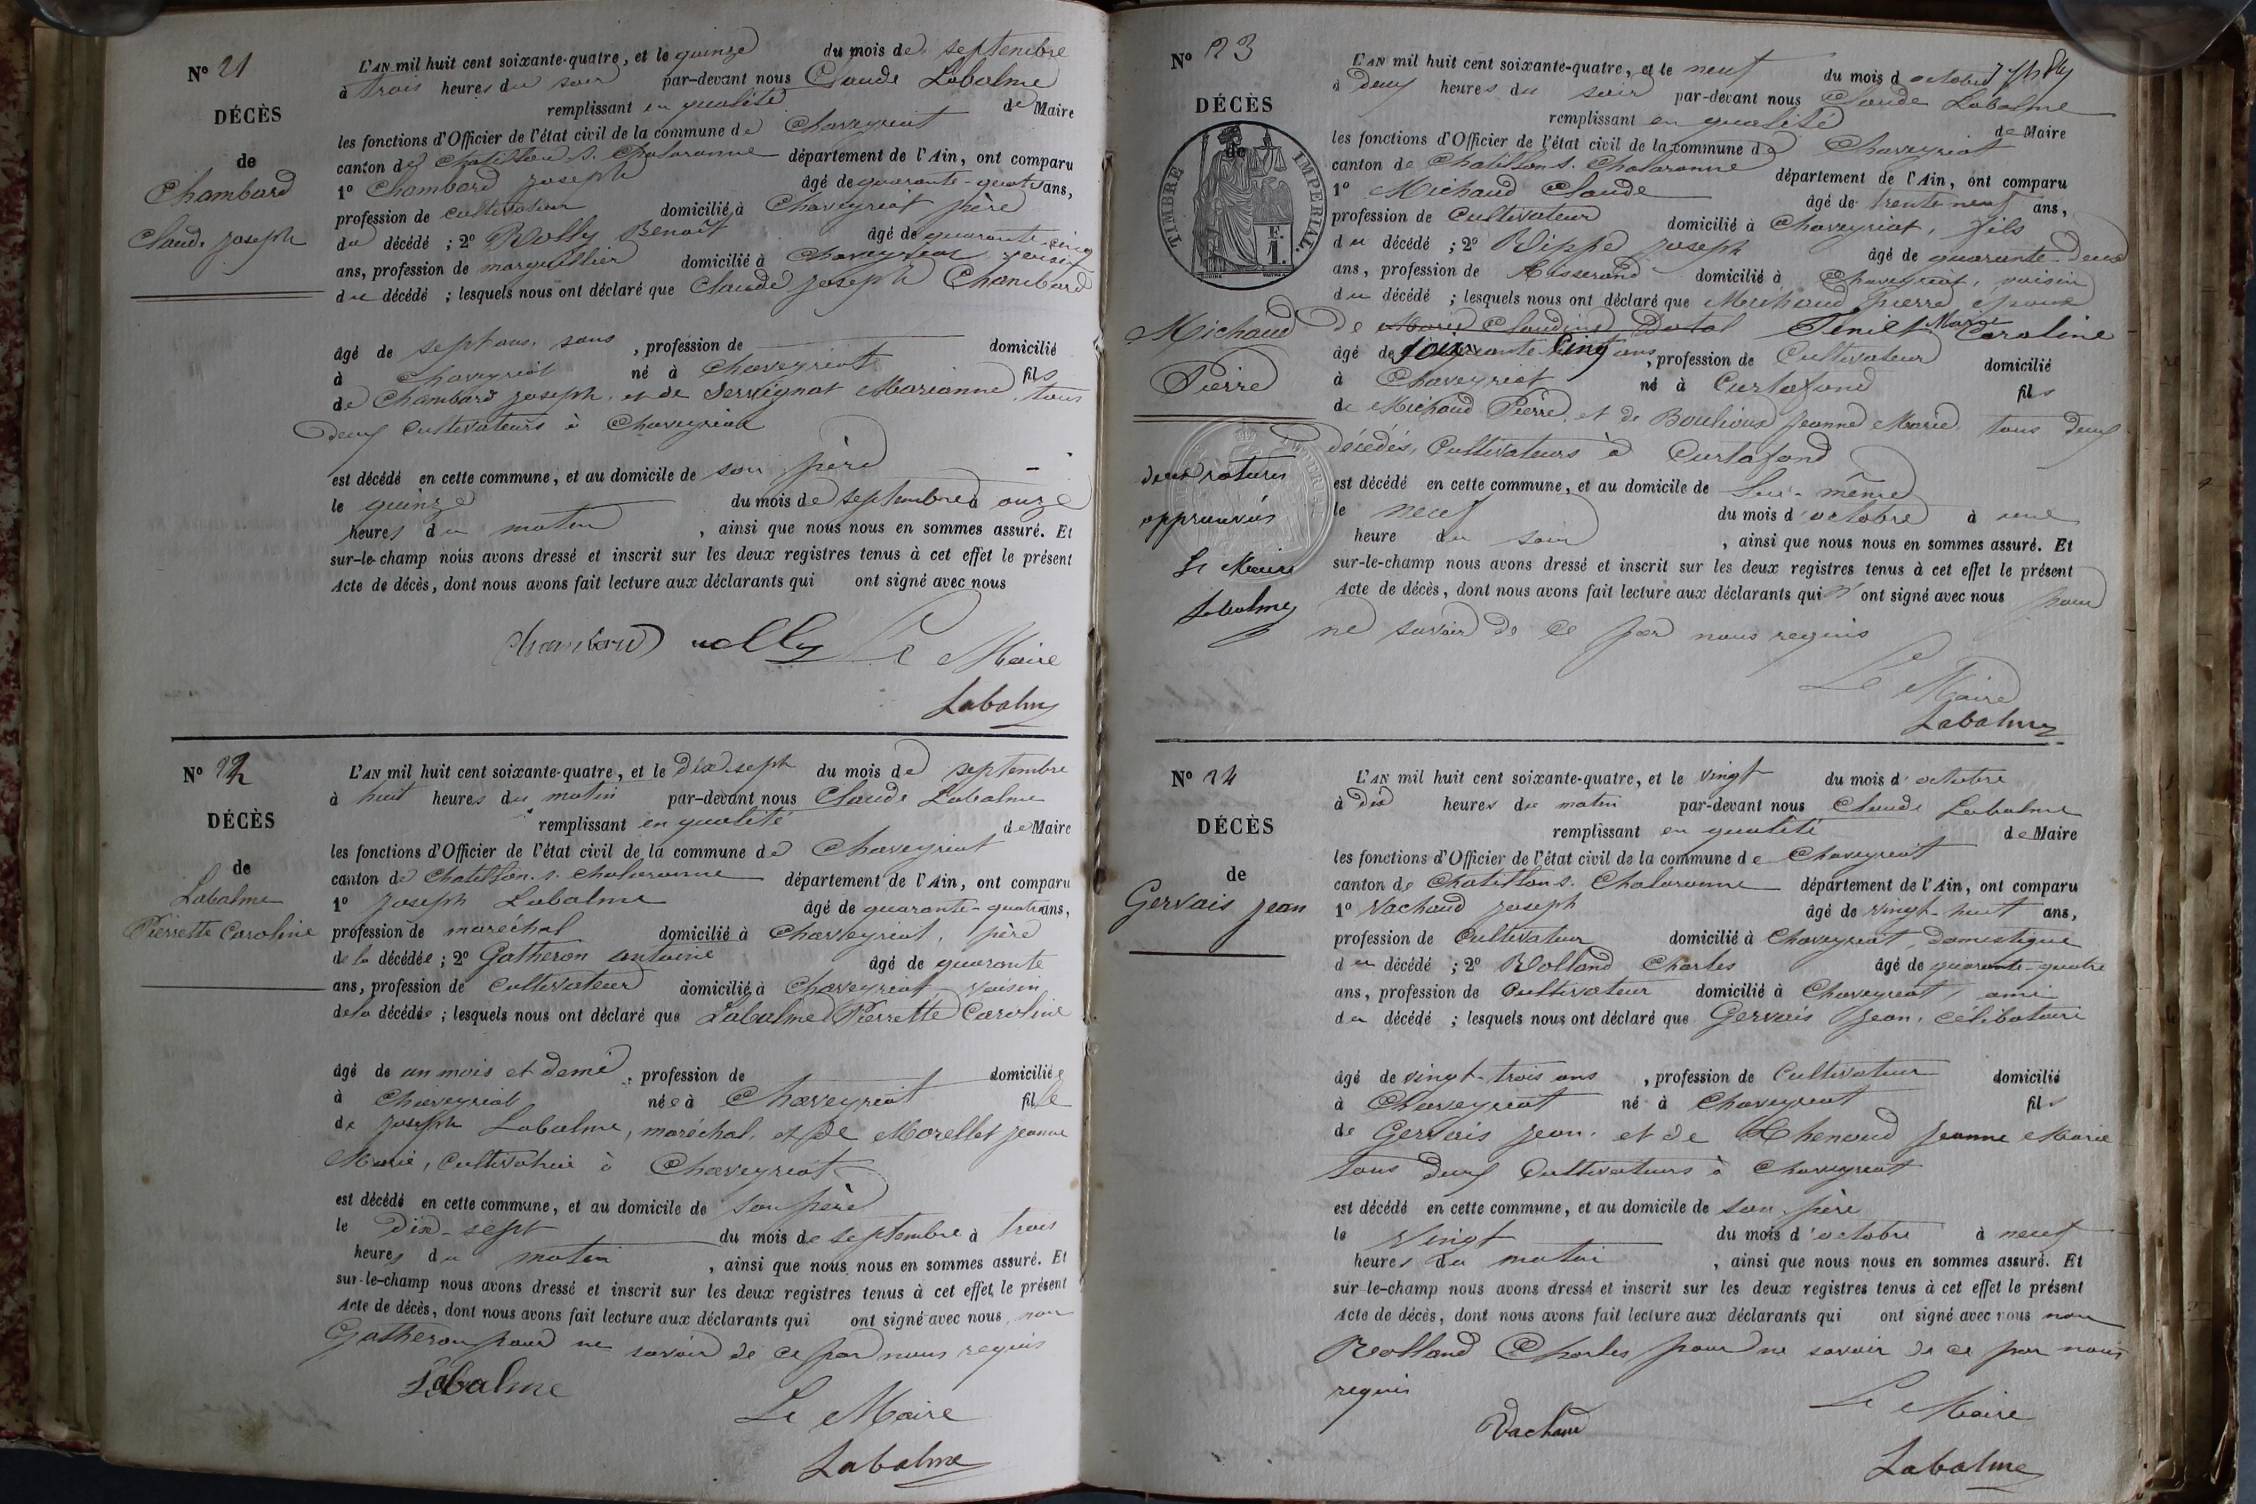 N° 21
DÉCÈS
de
Chambard
Claude Joseph
L'AN mil huit cent soixante-quatre, et le quinze du mois de septembre
à trois heures du soir par-devant nous Claude Labalme
remplissant en qualité de Maire
les fonctions d'Officier de l'état civil de la commune de Chaveyriat
canton de Chatillon s. Chalaronne département de l'Ain, ont comparu
1° Chambard Joseph âgé de quarante-quatre ans,
profession de cultivateur domicilié à Chaveyriat père
du décédé ; 2° Rolly Benoît âgé de quarante-cinq
ans, profession de marguillier domicilié à Chaveyriat voisin
du décédé ; lesquels nous ont déclaré que Claude Joseph Chambard
âgé de sept ans, sans , profession de domicilié
à Chaveyriat né à Chaveyriat fils
de Chambard Joseph, et de Servignat Marianne, tous
deux cultivateurs à Chaveyriat
est décédé en cette commune, et au domicile de son père
le quinze du mois de septembre à onze
heures du matin , ainsi que nous nous en sommes assuré. Et
sur-le-champ nous avons dressé et inscrit sur les deux registres tenus à cet effet le présent
Acte de décès, dont nous avons fait lecture aux déclarants qui ont signé avec nous
Chambard Le Maire
Labalme
N° 22
DÉCÈS
de
Labalme
Pierrette Caroline
L'AN mil huit cent soixante-quatre, et le dix-sept du mois de septembre
à huit heures du matin par-devant nous Claude Labalme
remplissant en qualité de Maire
les fonctions d'Officier de l'état civil de la commune de Chaveyriat
canton de Chatillon s. Chalaronne département de l'Ain, ont comparu
1° Joseph Labalme âgé de quarante-quatre ans,
profession de maréchal domicilié à Chaveyriat, père
de la décédée ; 2° Gatheron Antoine âgé de quarante
ans, profession de cultivateur domicilié à Chaveyriat voisin
de la décédée ; lesquels nous ont déclaré que Labalme Pierrette Caroline
âgé de un mois et demi , profession de domiciliée
à Chaveyriat née à Chaveyriat fille
de Joseph Labalme, maréchal, et de Morellet Jeanne
Marie, cultivatrice à Chaveyriat
est décédé en cette commune, et au domicile de son père
le dix-sept du mois de septembre à trois
heures du matin , ainsi que nous nous en sommes assuré. Et
sur-le-champ nous avons dressé et inscrit sur les deux registres tenus à cet effet le présent
Acte de décès, dont nous avons fait lecture aux déclarants qui ont signé avec nous, non
Gatheron pour ne savoir de ce par nous requis
Labalme Le Maire
Labalme
N° 23
DÉCÈS
de
TIMBRE IMPERIAL.
F.
1.
Michaud
Pierre
deux ratures
approuvés
Le Maire
Labalme
L'AN mil huit cent soixante-quatre, et le neuf du mois d'octobre
à deux heures du soir par-devant nous Claude Labalme
remplissant en qualité de Maire
les fonctions d'Officier de l'état civil de la commune de Chaveyriat
canton de Chatillon s. Chalaronne département de l'Ain, ont comparu
1° Michaud Claude âgé de trente neuf ans,
profession de cultivateur domicilié à Chaveyriat, fils
du décédé ; 2° Rippe Joseph âgé de quarante-deux
ans, profession de tisserand domicilié à Chaveyriat, voisin
du décédé ; lesquels nous ont déclaré que Michaud Pierre époux
de Marie Claudine Marie Caroline
âgé de soixante cinq ans, profession de Cultivateur domicilié
à Chaveyriat né à Curtafond fils
de Michaud Pierre, et de Bouhioux Jeanne Marie, tous deux
décédés, Cultivateurs à Curtafond
est décédé en cette commune, et au domicile de lui-même
le neuf du mois d'octobre à une
heure du soir , ainsi que nous nous en sommes assuré. Et
sur-le-champ nous avons dressé et inscrit sur les deux registres tenus à cet effet le présent
Acte de décès, dont nous avons fait lecture aux déclarants qui n'ont signé avec nous pour
ne savoir de ce par nous requis
Le Maire
Labalme
N° 24
DÉCÈS
de
Gervais Jean
L'AN mil huit cent soixante-quatre, et le vingt du mois d'octobre
à dix heures du matin par-devant nous Claude Labalme
remplissant en qualité de Maire
les fonctions d'Officier de l'état civil de la commune de Chaveyriat
canton de Chatillon s. Chalaronne département de l'Ain, ont comparu
1° Vachaud Joseph âgé de vingt-huit ans,
profession de Cultivateur domicilié à Chaveyriat, domestique
du décédé ; 2° Rolland Charles âgé de quarante-quatre
ans, profession de Cultivateur domicilié à Chaveyriat, ami
du décédé ; lesquels nous ont déclaré que Gervais Jean, célibataire
âgé de vingt-trois ans , profession de Cultivateur domicilié
à Chaveyriat né à Chaveyriat fils
de Gervais Jean, et de Chenaud Jeanne Marie
tous deux Cultivateurs à Chaveyriat
est décédé en cette commune, et au domicile de son père
le vingt du mois d'octobre à neuf
heures du matin , ainsi que nous nous en sommes assuré. Et
sur-le-champ nous avons dressé et inscrit sur les deux registres tenus à cet effet le présent
Acte de décès, dont nous avons fait lecture aux déclarants qui ont signé avec nous non
Rolland Charles pour ne savoir de ce par nous
requis Le Maire
Vachaud
Labalme